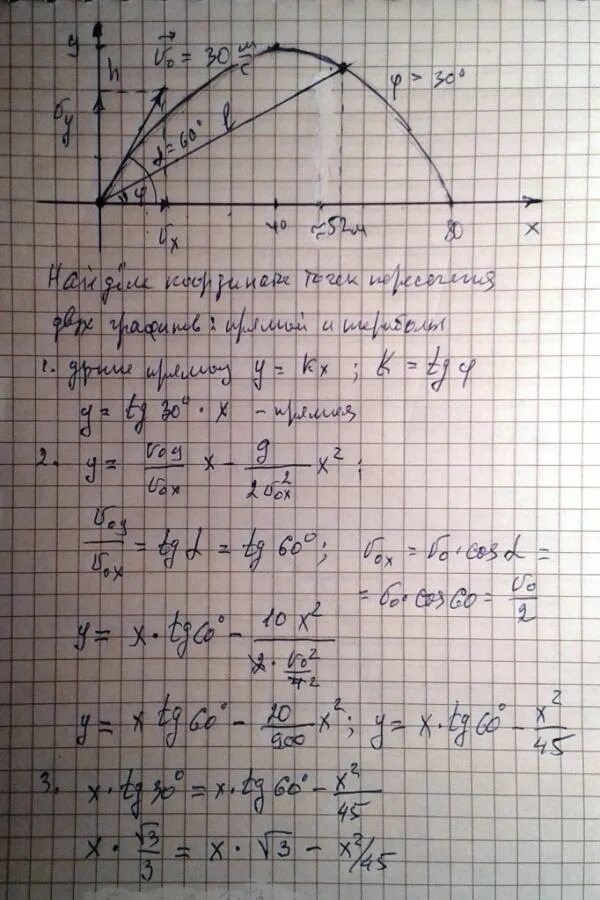 y
h
v⃗₀ = 30 м/с
φ = 30°
v_y
α = 60°
l
φ
v_x
40
≈52м
80
x
Найдём координаты точек пересечения
двух графиков: прямой и параболы
1. y = kx ; k = tg φ
y = tg 30° · x - прямая
2. y = v₀y/v₀x x - g/2v₀x² x² ;
v₀y/v₀x = tg α = tg 60° ; v₀x = v₀ · cos α =
= v₀ · cos 60 = v₀/2
y = x · tg 60° - 10 x²/2 · v₀²/4
y = x tg 60° - 20/900 x² ; y = x · tg 60° - x²/45
3. x · tg 30° = x · tg 60° - x²/45
x · √3/3 = x · √3 - x²/45